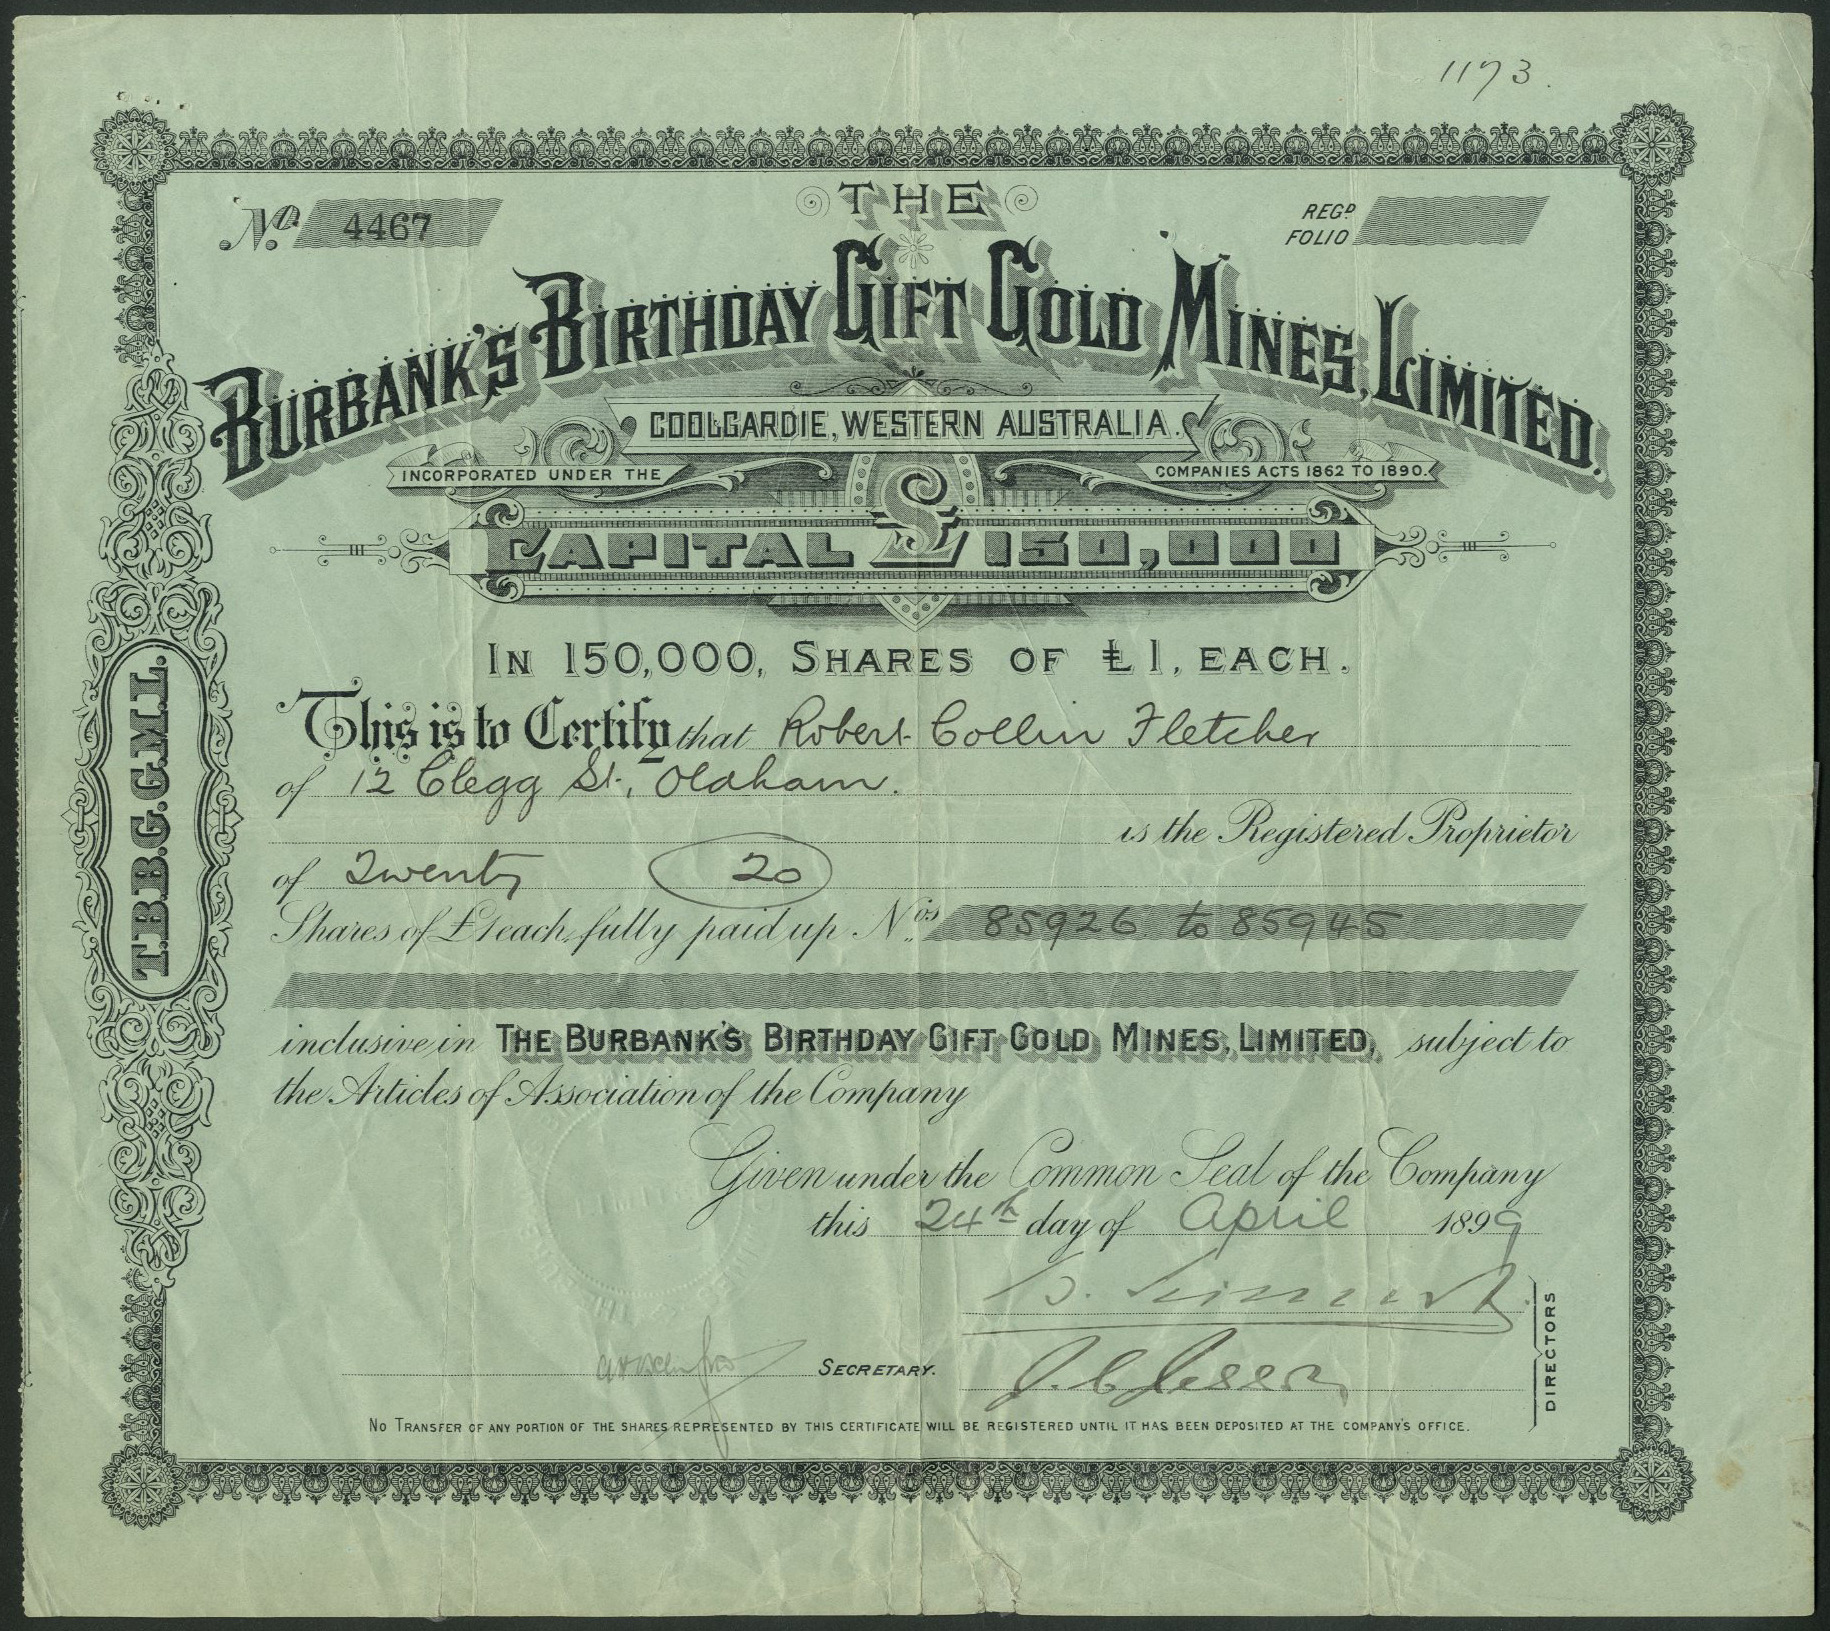 1173.
No. 4467
THE
REGD
FOLIO
BURBANK'S BIRTHDAY GIFT GOLD MINES, LIMITED.
COOLGARDIE, WESTERN AUSTRALIA.
INCORPORATED UNDER THE COMPANIES ACTS 1862 TO 1890.
CAPITAL £150,000
IN 150,000, SHARES OF £1, EACH.
T.B.B.G.G.M.L.
This is to Certify that Robert Collin Fletcher
of 12 Clegg St., Oldham.
is the Registered Proprietor
of Twenty 20
Shares of £1 each, fully paid up Nos 85926 to 85945
inclusive in THE BURBANK'S BIRTHDAY GIFT GOLD MINES, LIMITED, subject to
the Articles of Association of the Company
Given under the Common Seal of the Company
this 24th day of April 1899
SECRETARY.
DIRECTORS
NO TRANSFER OF ANY PORTION OF THE SHARES REPRESENTED BY THIS CERTIFICATE WILL BE REGISTERED UNTIL IT HAS BEEN DEPOSITED AT THE COMPANY'S OFFICE.